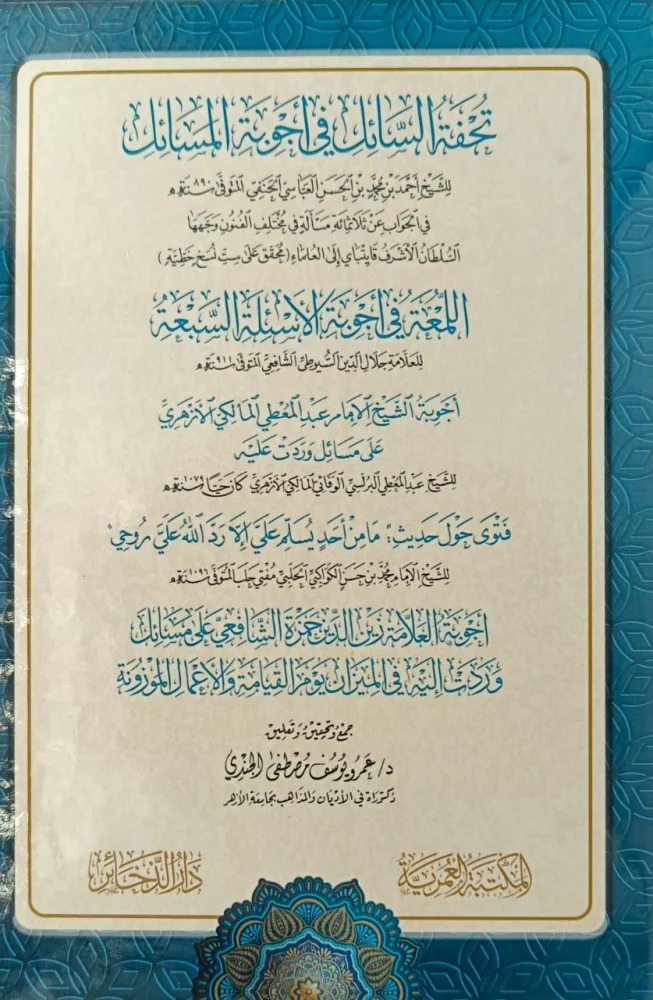 تُحْفَةُ السَّائِلِ فِي أَجْوِبَةِ المَسَائِلِ
لِلشَّيْخِ أَحْمَدَ بْنِ مُحَمَّدِ بْنِ الحَسَنِ العَبَّاسِيِّ الحَنَفِيِّ المُتَوَفَّى سَنَةَ ٨٩٠هـ
فِي الجَوَابِ عَنْ ثَلَاثِمِائَةِ مَسْأَلَةٍ فِي مُخْتَلِفِ الفُنُونِ وَجَّهَهَا
السُّلْطَانُ الأَشْرَفُ قَايِتْبَاي إِلَى العُلَمَاءِ (مُحَقَّقٌ عَلَى سِتِّ نُسَخٍ خَطِّيَّةٍ)
اللُّمْعَةُ فِي أَجْوِبَةِ الأَسْئِلَةِ السَّبْعَةِ
لِلعَلَّامَةِ جَلَالِ الدِّينِ السُّيُوطِيِّ الشَّافِعِيِّ المُتَوَفَّى سَنَةَ ٩١١هـ
أَجْوِبَةُ الشَّيْخِ الإِمَامِ عَبْدِ المُعْطِي المَالِكِيِّ الأَزْهَرِيِّ
عَلَى مَسَائِلَ وَرَدَتْ عَلَيْهِ
لِلشَّيْخِ عَبْدِ المُعْطِي البُرُلُّسِيِّ الوَفَائِيِّ المَالِكِيِّ الأَزْهَرِيِّ كَانَ حَيًّا سَنَةَ ١٠٧٩هـ
فَتْوَى حَوْلَ حَدِيثِ: "مَا مِنْ أَحَدٍ يُسَلِّمُ عَلَيَّ إِلَّا رَدَّ اللهُ عَلَيَّ رُوحِي"
لِلشَّيْخِ الإِمَامِ مُحَمَّدِ بْنِ حَسَنٍ الكَوَاكِبِيِّ الحَلَبِيِّ مُفْتِي حَلَبَ المُتَوَفَّى سَنَةَ ١٠٩٦هـ
أَجْوِبَةُ العَلَّامَةِ زَيْنِ الدِّينِ حَمْزَةَ الشَّافِعِيِّ عَلَى مَسَائِلَ
وَرَدَتْ إِلَيْهِ فِي المِيزَانِ يَوْمَ القِيَامَةِ وَالأَعْمَالِ المَوْزُونَةِ
جَمْعُ وَتَحْقِيقُ وَتَعْلِيقُ
د/ عَمْرو يُوسُف مُصْطَفَى الجُنْدِي
دُكْتُورَاة فِي الأَدْيَانِ وَالمَذَاهِبِ بِجَامِعَةِ الأَزْهَر
المَكْتَبَةُ العُمَرِيَّةُ
دَارُ الذَّخَائِرِ